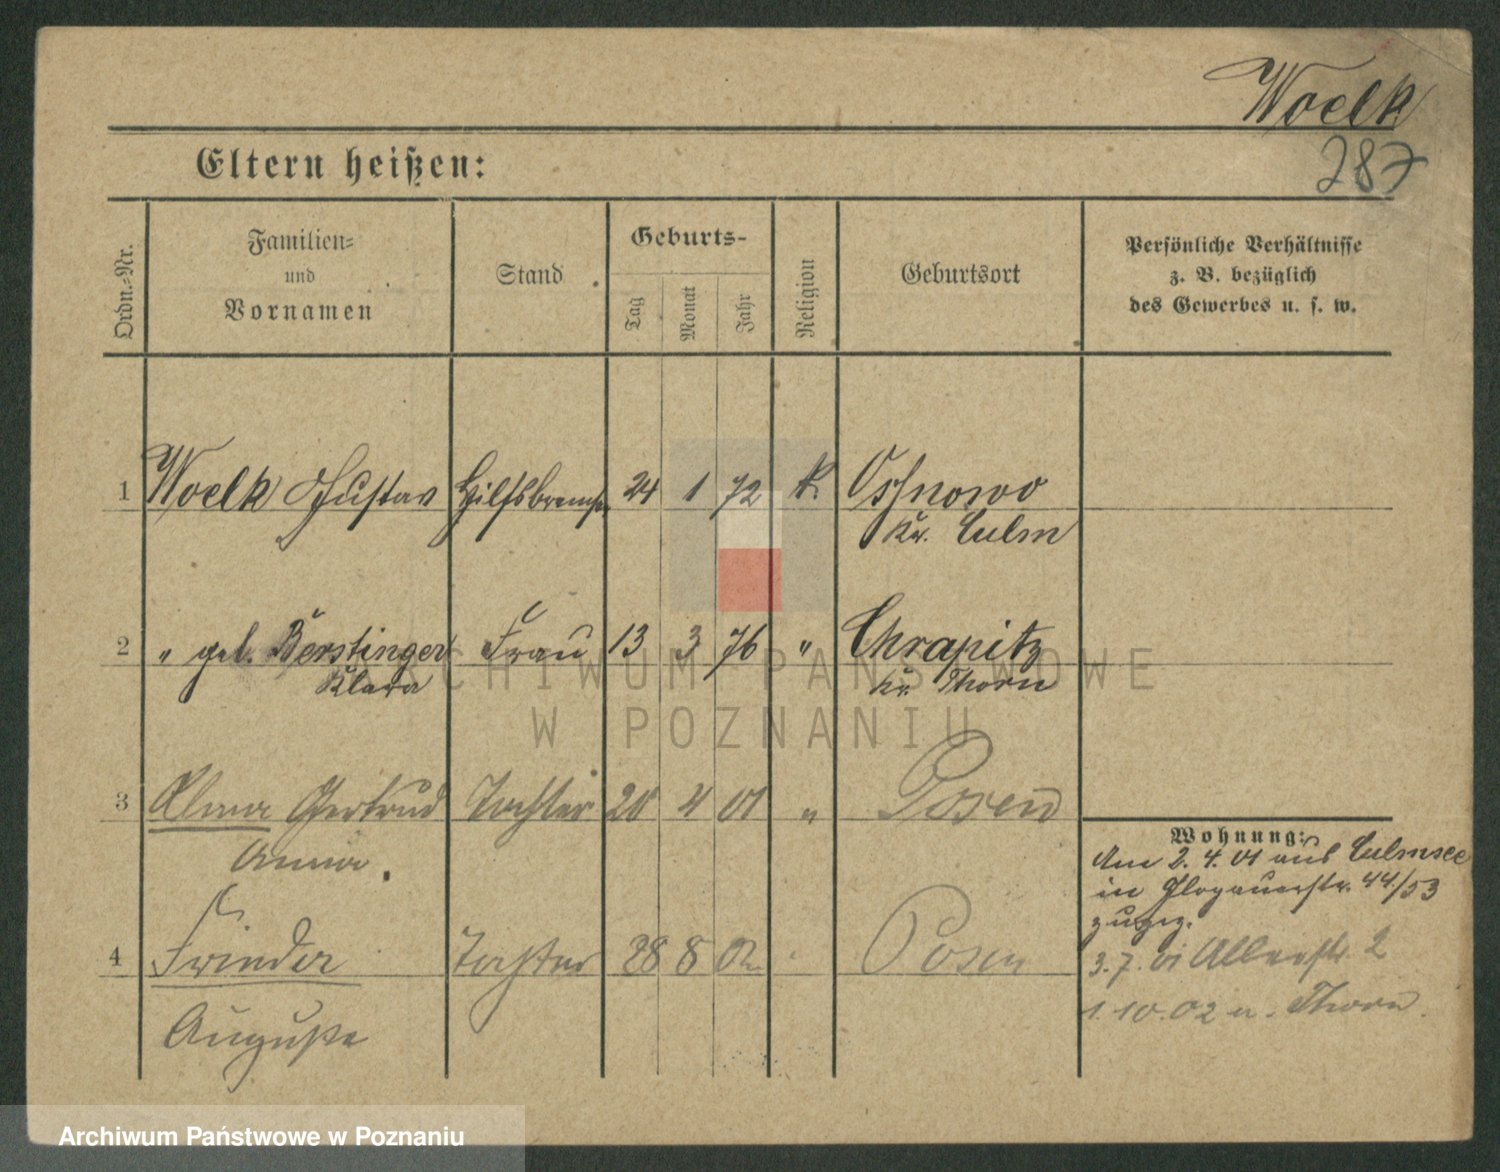 Woelk
287
Eltern heißen:
Ordn.-Nr.
Familien- und Vornamen
Stand
Geburts-
Tag
Monat
Jahr
Religion
Geburtsort
Persönliche Verhältnisse
z. B. bezüglich
des Gewerbes u. s. w.
1 Woelk Gustav Hilfsbremser 24 1 72 k. Osnowo
Kr. Culm
2 " geb. Berstinger Frau 13 3 76 " Chrapitz
Klara Kr. Thorn
3 Klara Gertrud Tochter 20 4 01 " Posen
Anna.
Wohnung:
Am 2. 4. 01 aus Culmsee
in Glogauerstr. 44/53
zugez.
4 Frieda Tochter 28 8 02 Posen
Auguste
3. 7. 01 Allerstr. 2
1. 10. 02 n. Thorn.
ARCHIWUM PAŃSTWOWE
W POZNANIU
Archiwum Państwowe w Poznaniu